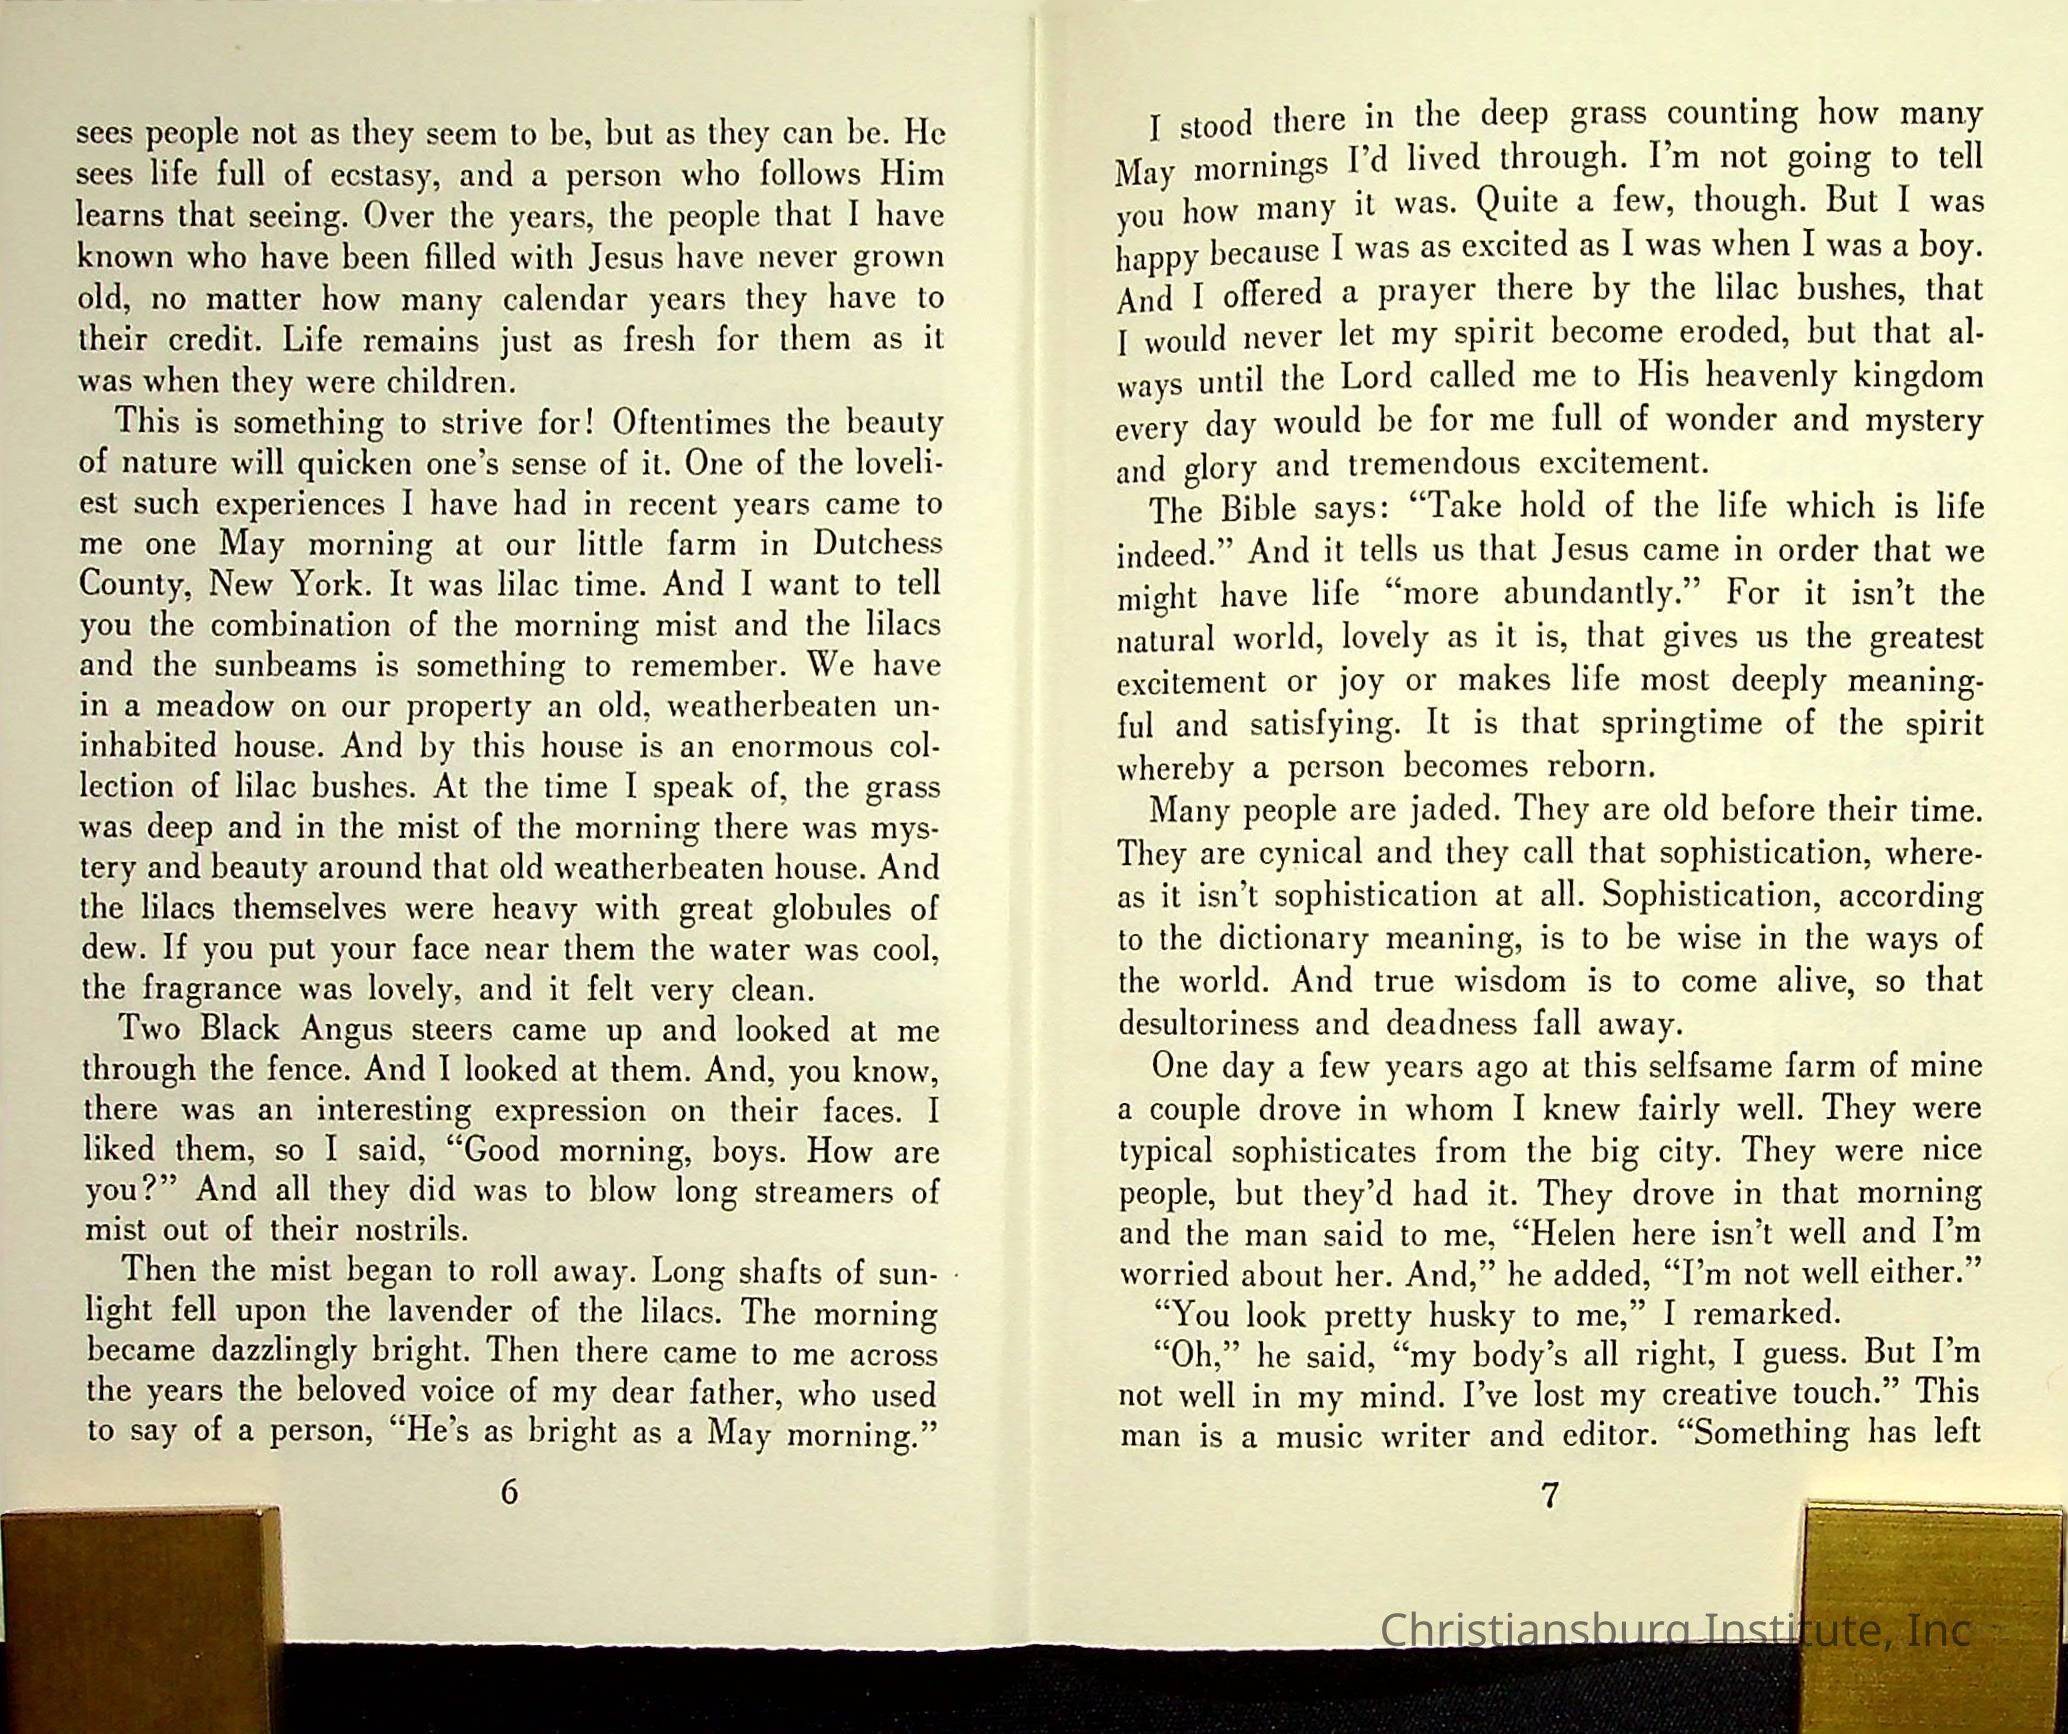 sees people not as they seem to be, but as they can be. He
sees life full of ecstasy, and a person who follows Him
learns that seeing. Over the years, the people that I have
known who have been filled with Jesus have never grown
old, no matter how many calendar years they have to
their credit. Life remains just as fresh for them as it
was when they were children.
This is something to strive for! Oftentimes the beauty
of nature will quicken one's sense of it. One of the loveli-
est such experiences I have had in recent years came to
me one May morning at our little farm in Dutchess
County, New York. It was lilac time. And I want to tell
you the combination of the morning mist and the lilacs
and the sunbeams is something to remember. We have
in a meadow on our property an old, weatherbeaten un-
inhabited house. And by this house is an enormous col-
lection of lilac bushes. At the time I speak of, the grass
was deep and in the mist of the morning there was mys-
tery and beauty around that old weatherbeaten house. And
the lilacs themselves were heavy with great globules of
dew. If you put your face near them the water was cool,
the fragrance was lovely, and it felt very clean.
Two Black Angus steers came up and looked at me
through the fence. And I looked at them. And, you know,
there was an interesting expression on their faces. I
liked them, so I said, “Good morning, boys. How are
you?” And all they did was to blow long streamers of
mist out of their nostrils.
Then the mist began to roll away. Long shafts of sun-
light fell upon the lavender of the lilacs. The morning
became dazzlingly bright. Then there came to me across
the years the beloved voice of my dear father, who used
to say of a person, “He's as bright as a May morning.”
6
I stood there in the deep grass counting how many
May mornings I'd lived through. I'm not going to tell
you how many it was. Quite a few, though. But I was
happy because I was as excited as I was when I was a boy.
And I offered a prayer there by the lilac bushes, that
I would never let my spirit become eroded, but that al-
ways until the Lord called me to His heavenly kingdom
every day would be for me full of wonder and mystery
and glory and tremendous excitement.
The Bible says: “Take hold of the life which is life
indeed.” And it tells us that Jesus came in order that we
might have life “more abundantly.” For it isn't the
natural world, lovely as it is, that gives us the greatest
excitement or joy or makes life most deeply meaning-
ful and satisfying. It is that springtime of the spirit
whereby a person becomes reborn.
Many people are jaded. They are old before their time.
They are cynical and they call that sophistication, where-
as it isn't sophistication at all. Sophistication, according
to the dictionary meaning, is to be wise in the ways of
the world. And true wisdom is to come alive, so that
desultoriness and deadness fall away.
One day a few years ago at this selfsame farm of mine
a couple drove in whom I knew fairly well. They were
typical sophisticates from the big city. They were nice
people, but they'd had it. They drove in that morning
and the man said to me, “Helen here isn't well and I'm
worried about her. And,” he added, “I'm not well either.”
“You look pretty husky to me,” I remarked.
“Oh,” he said, “my body's all right, I guess. But I'm
not well in my mind. I've lost my creative touch.” This
man is a music writer and editor. “Something has left
7
Christiansburg Institute, Inc